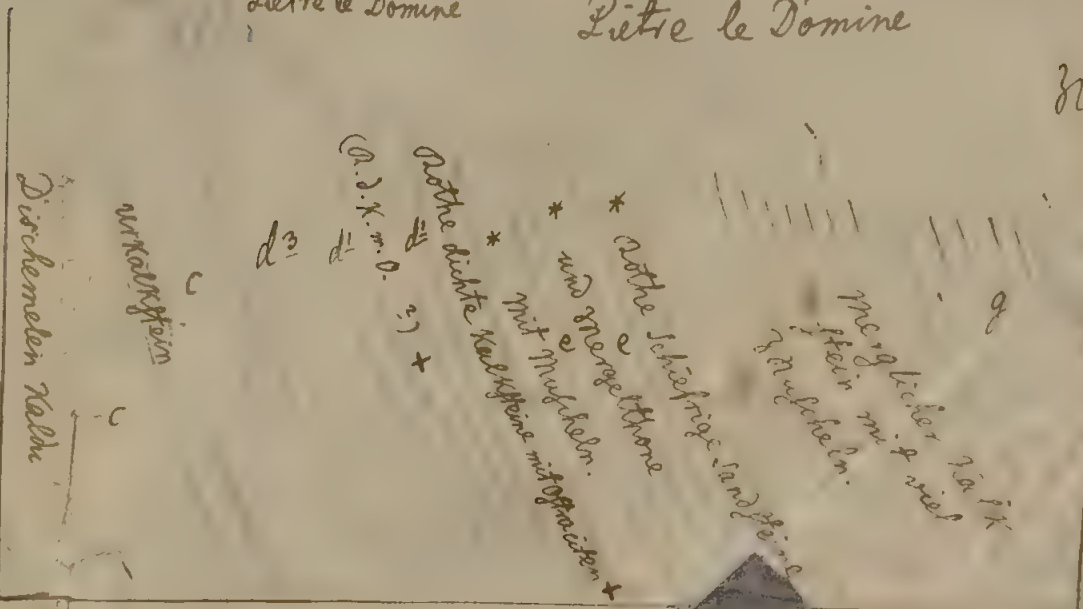 Piètre le Domine
Piètre le Domine
Dirchemelen Kaldu
urkalkstein
C
C
d3
d1
d"
(R.d.K.m.O. ?) +
Rothe dichte Kalksteine mit +
* mit Muscheln.
* und Mergelthone
* Rothe Schiefrige Sandsteine
e
e
Merglicher Kalk
stein mit viel
Muscheln.
g